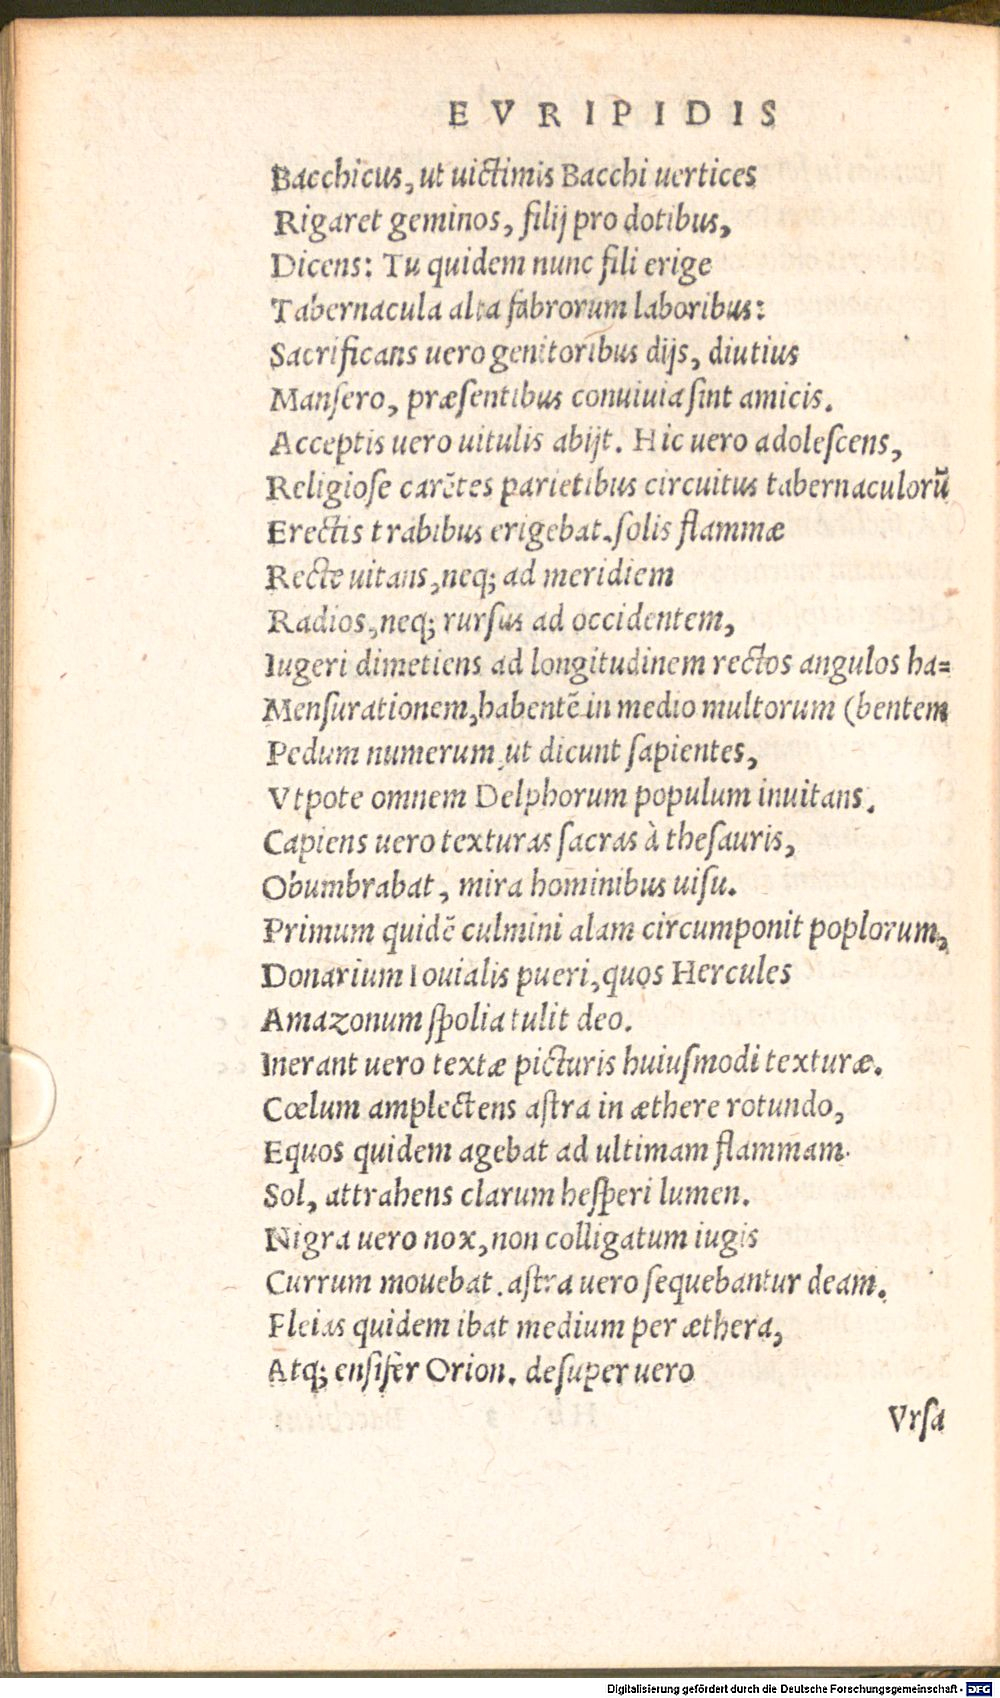 EVRIPIDIS
Bacchicus, ut uictimis Bacchi uertices
Rigaret geminos, filij pro dotibus,
Dicens: Tu quidem nunc fili erige
Tabernacula alta fabrorum laboribus:
Sacrificans uero genitoribus dijs, diutius
Mansero, præsentibus conuiuia sint amicis.
Acceptis uero uitulis abijt. Hic uero adolescens,
Religiose carẽtes parietibus circuitus tabernaculorũ
Erectis trabibus erigebat. solis flammæ
Recte uitans, neq; ad meridiem
Radios, neq; rursus ad occidentem,
Iugeri dimetiens ad longitudinem rectos angulos ha=
Mensurationem, habentẽ in medio multorum (bentem
Pedum numerum ut dicunt sapientes,
Vtpote omnem Delphorum populum inuitans.
Capiens uero texturas sacras à thesauris,
Obumbrabat, mira hominibus uisu.
Primum quidẽ culmini alam circumponit poplorum,
Donarium Iouialis pueri, quos Hercules
Amazonum spolia tulit deo.
Inerant uero textæ picturis huiusmodi texturæ.
Cœlum amplectens astra in æthere rotundo,
Equos quidem agebat ad ultimam flammam.
Sol, attrahens clarum hesperi lumen.
Nigra uero nox, non colligatum iugis
Currum mouebat. astra uero sequebantur deam.
Pleias quidem ibat medium per æthera,
Atq; ensifer Orion. desuper uero
Vrsa
Digitalisierung gefördert durch die Deutsche Forschungsgemeinschaft - DFG